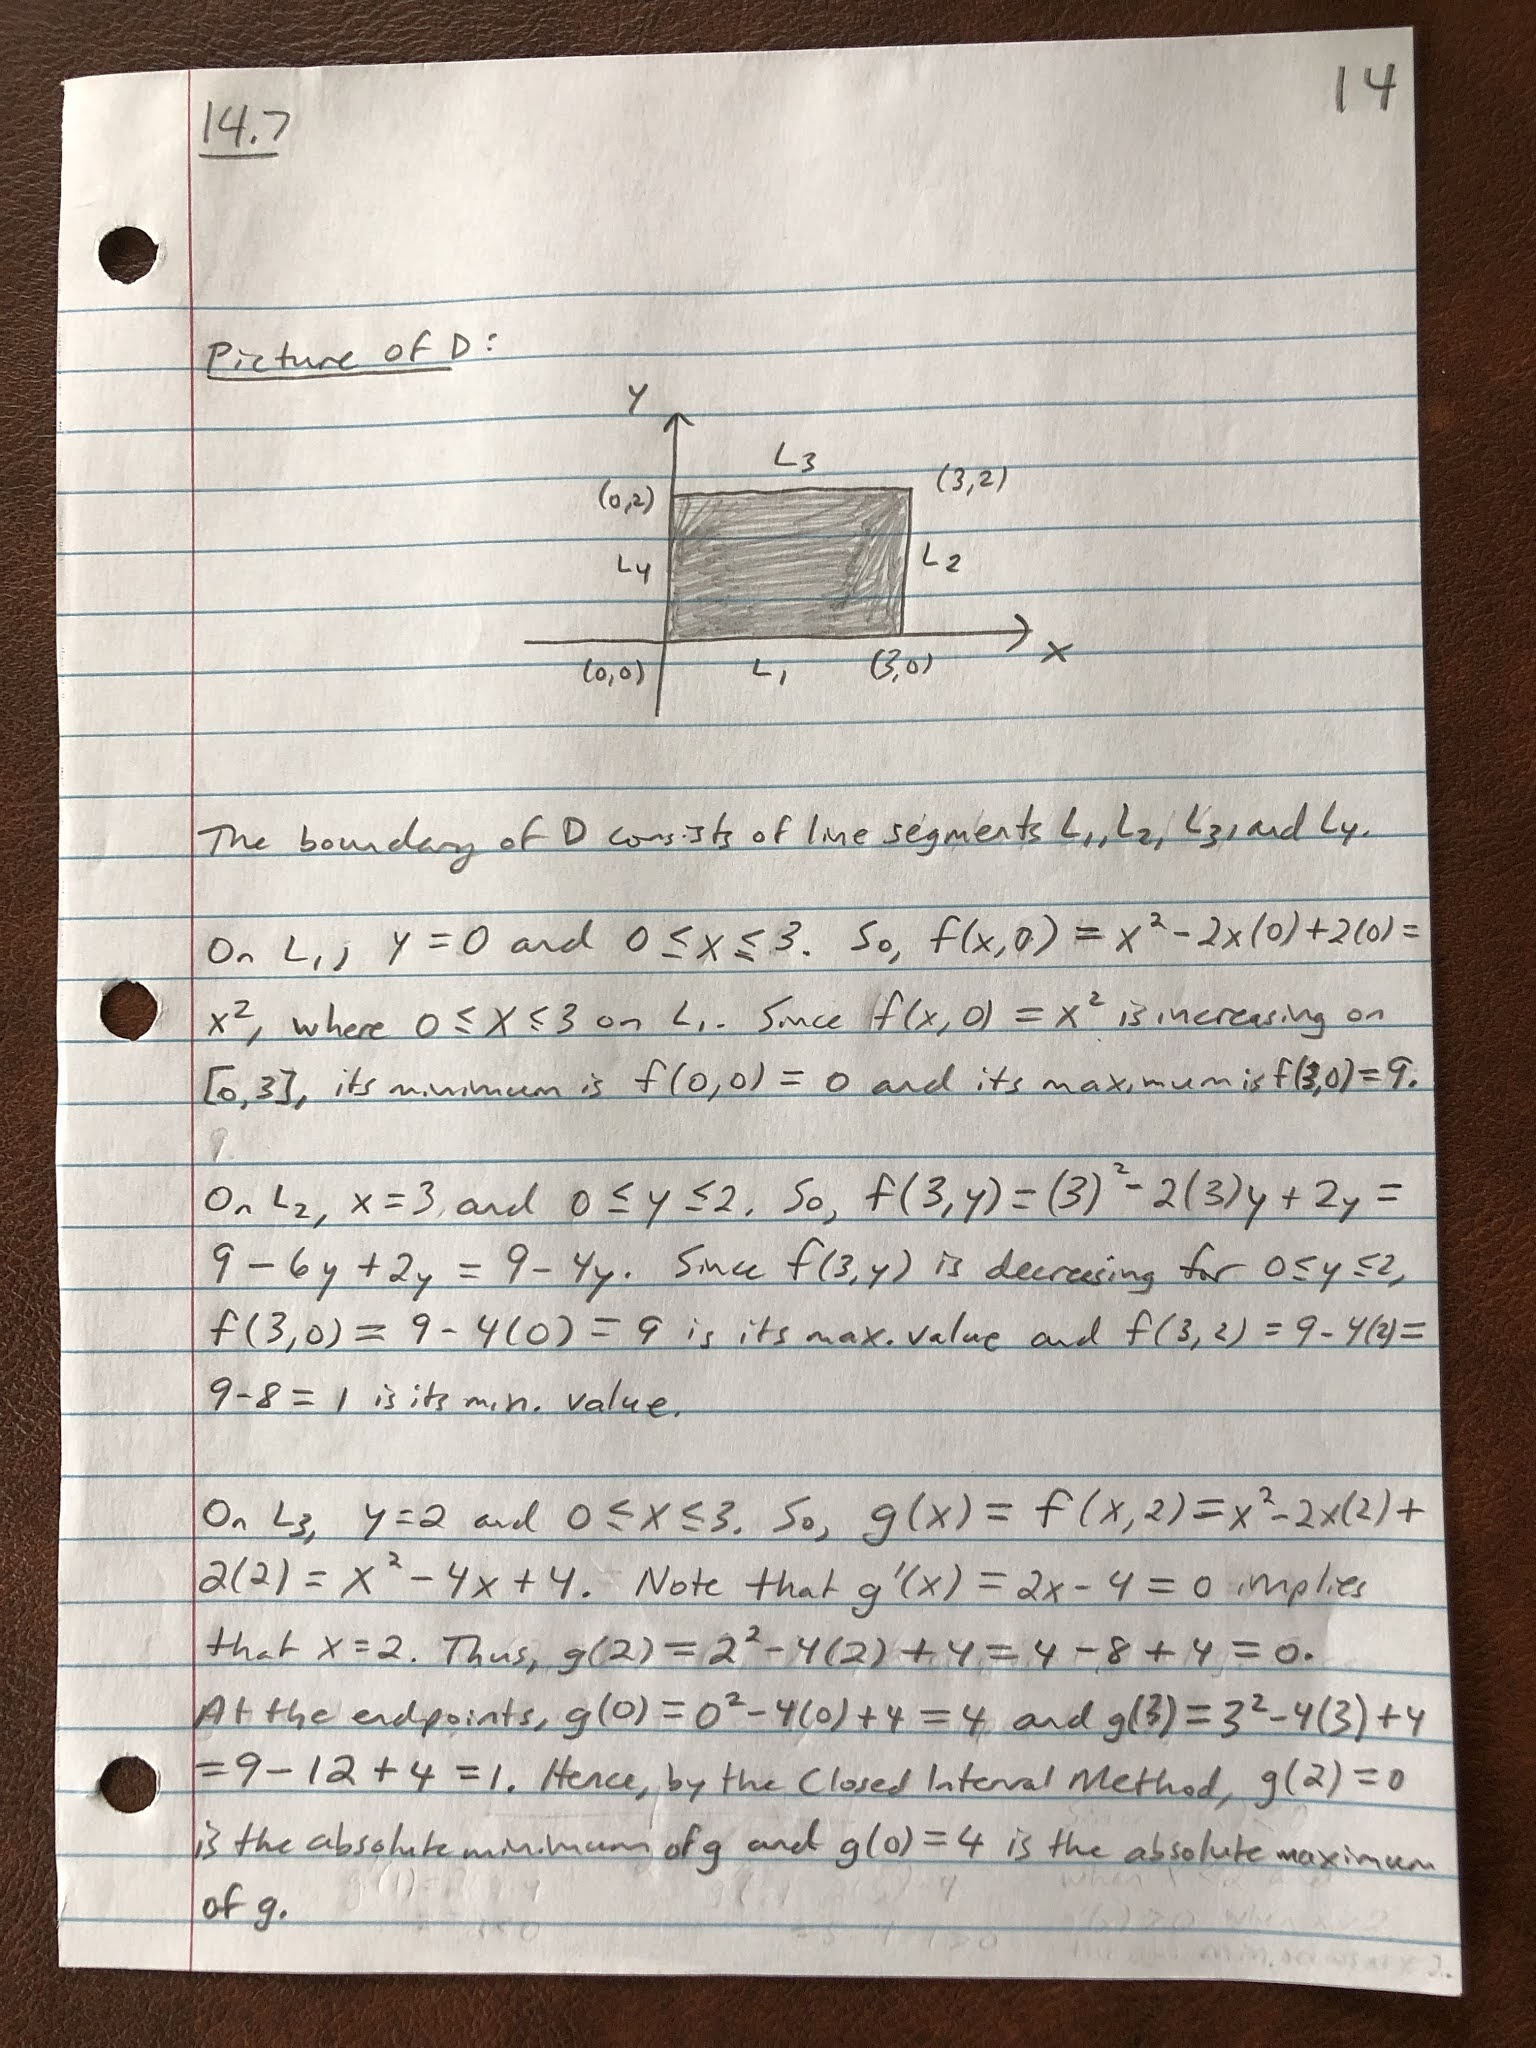 14
14.7
Picture of D:
y
L3
(0,2)
(3,2)
L4
L2
x
(0,0)
L1
(3,0)
The boundary of D consists of line segments L1, L2, L3, and L4.
On L1, y = 0 and 0 ≤ x ≤ 3. So, f(x,0) = x² - 2x(0) + 2(0) =
x², where 0 ≤ x ≤ 3 on L1. Since f(x,0) = x² is increasing on
[0,3], its minimum is f(0,0) = 0 and its maximum is f(3,0) = 9.
On L2, x = 3 and 0 ≤ y ≤ 2. So, f(3,y) = (3)² - 2(3)y + 2y =
9 - 6y + 2y = 9 - 4y. Since f(3,y) is decreasing for 0 ≤ y ≤ 2,
f(3,0) = 9 - 4(0) = 9 is its max. value and f(3,2) = 9 - 4(2) =
9 - 8 = 1 is its min. value.
On L3, y = 2 and 0 ≤ x ≤ 3. So, g(x) = f(x,2) = x² - 2x(2) +
2(2) = x² - 4x + 4. Note that g'(x) = 2x - 4 = 0 implies
that x = 2. Thus, g(2) = 2² - 4(2) + 4 = 4 - 8 + 4 = 0.
At the endpoints, g(0) = 0² - 4(0) + 4 = 4 and g(3) = 3² - 4(3) + 4
= 9 - 12 + 4 = 1. Hence, by the Closed Interval Method, g(2) = 0
is the absolute minimum of g and g(0) = 4 is the absolute maximum
of g.